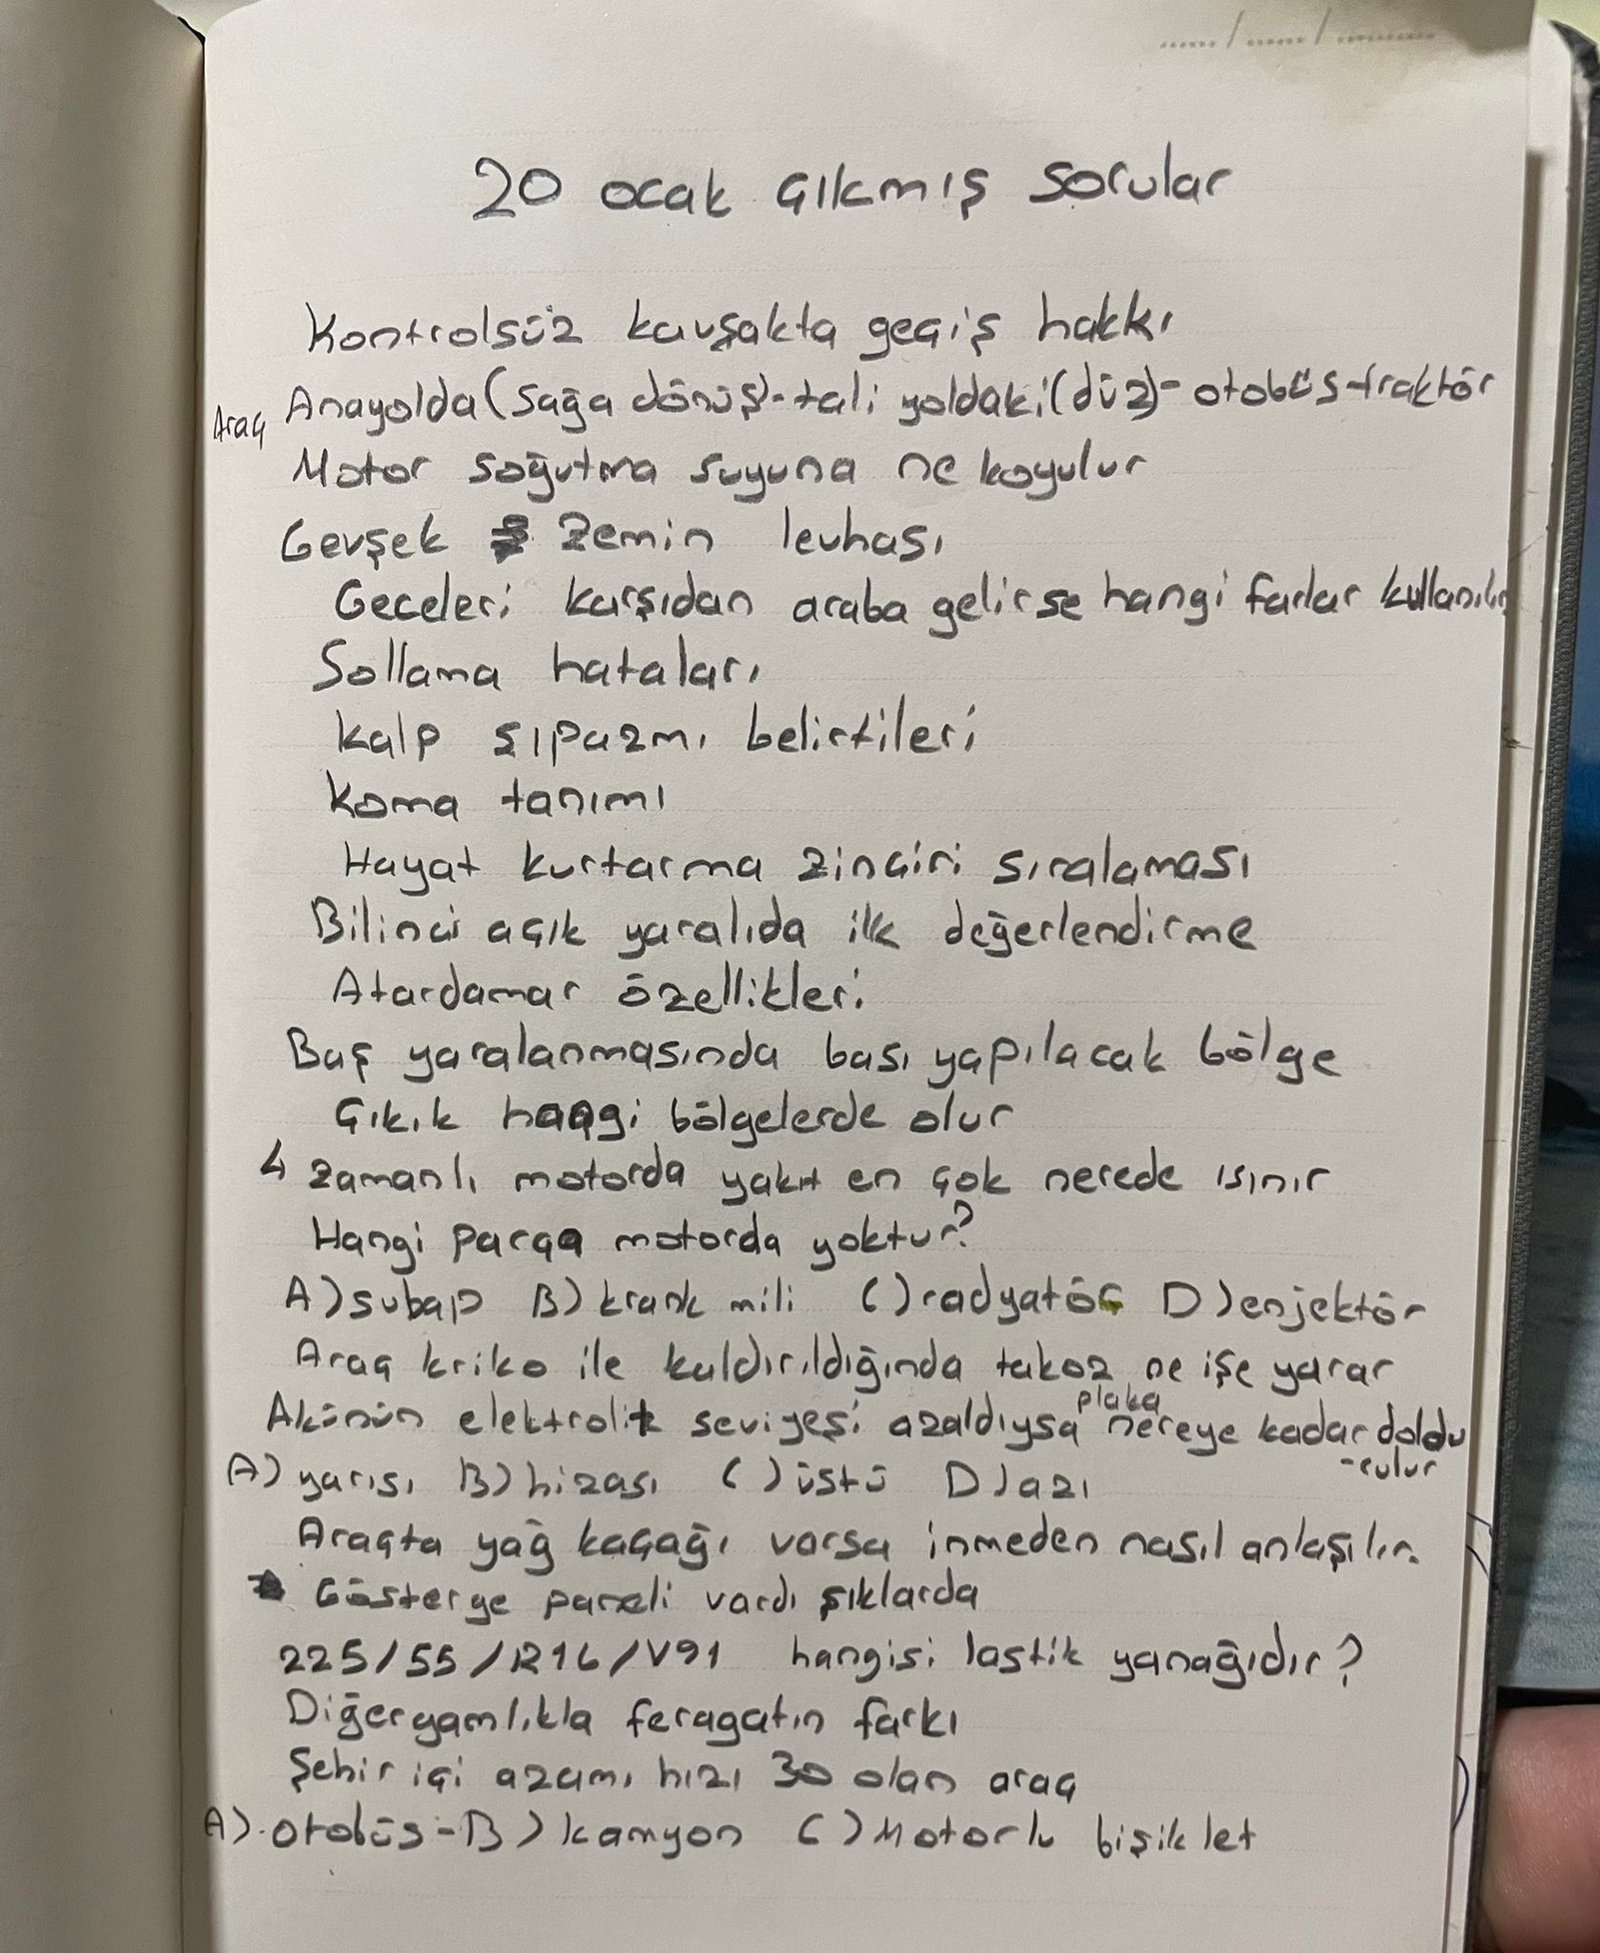 20 ocak çıkmış sorular
Kontrolsüz kavşakta geçiş hakkı
Araç Anayolda (sağa dönüş)-tali yoldaki (düz)- otobüs-traktör
Motor soğutma suyuna ne koyulur
Gevşek zemin levhası
Geceleri karşıdan araba gelirse hangi farlar kullanılır
Sollama hataları
Kalp sıpazmı belirtileri
Koma tanımı
Hayat kurtarma zinciri sıralaması
Bilinci açık yaralıda ilk değerlendirme
Atardamar özellikleri
Baş yaralanmasında bası yapılacak bölge
Çıkık hangi bölgelerde olur
4 zamanlı motorda yakıt en çok nerede ısınır
Hangi parça motorda yoktur?
A) subap B) krank mili C) radyatör D) enjektör
Araç kriko ile kaldırıldığında takoz ne işe yarar
Akünün elektrolit seviyesi azaldıysa plaka nereye kadar doldu
-rulur
A) yarısı B) hizası C) üstü D) azı
Araçta yağ kaçağı varsa inmeden nasıl anlaşılır.
Gösterge paneli vardı şıklarda
225/55/R16/V91 hangisi lastik yanağıdır?
Diğergamlıkla feragatın farkı
Şehir içi azamı hızı 30 olan araç
A) otobüs - B) kamyon C) Motorlu bisiklet